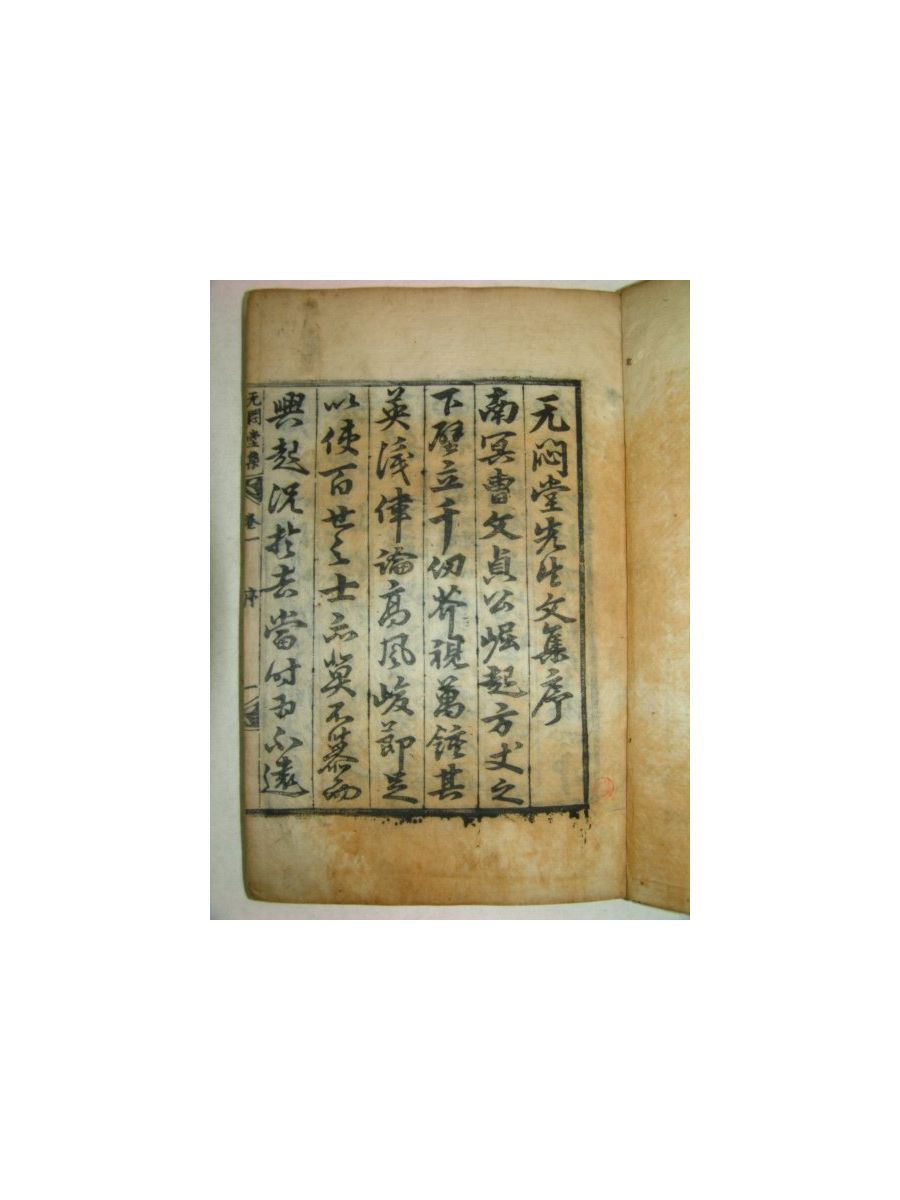 无悶堂先生文集序
南冥曺文貞公崛起方丈之
下壁立千仞芥視萬鍾其
英 偉論高風峻節足
以使百世之士亦莫不慕而
興起況於去當時而不遠
无悶堂集 卷一 序 一